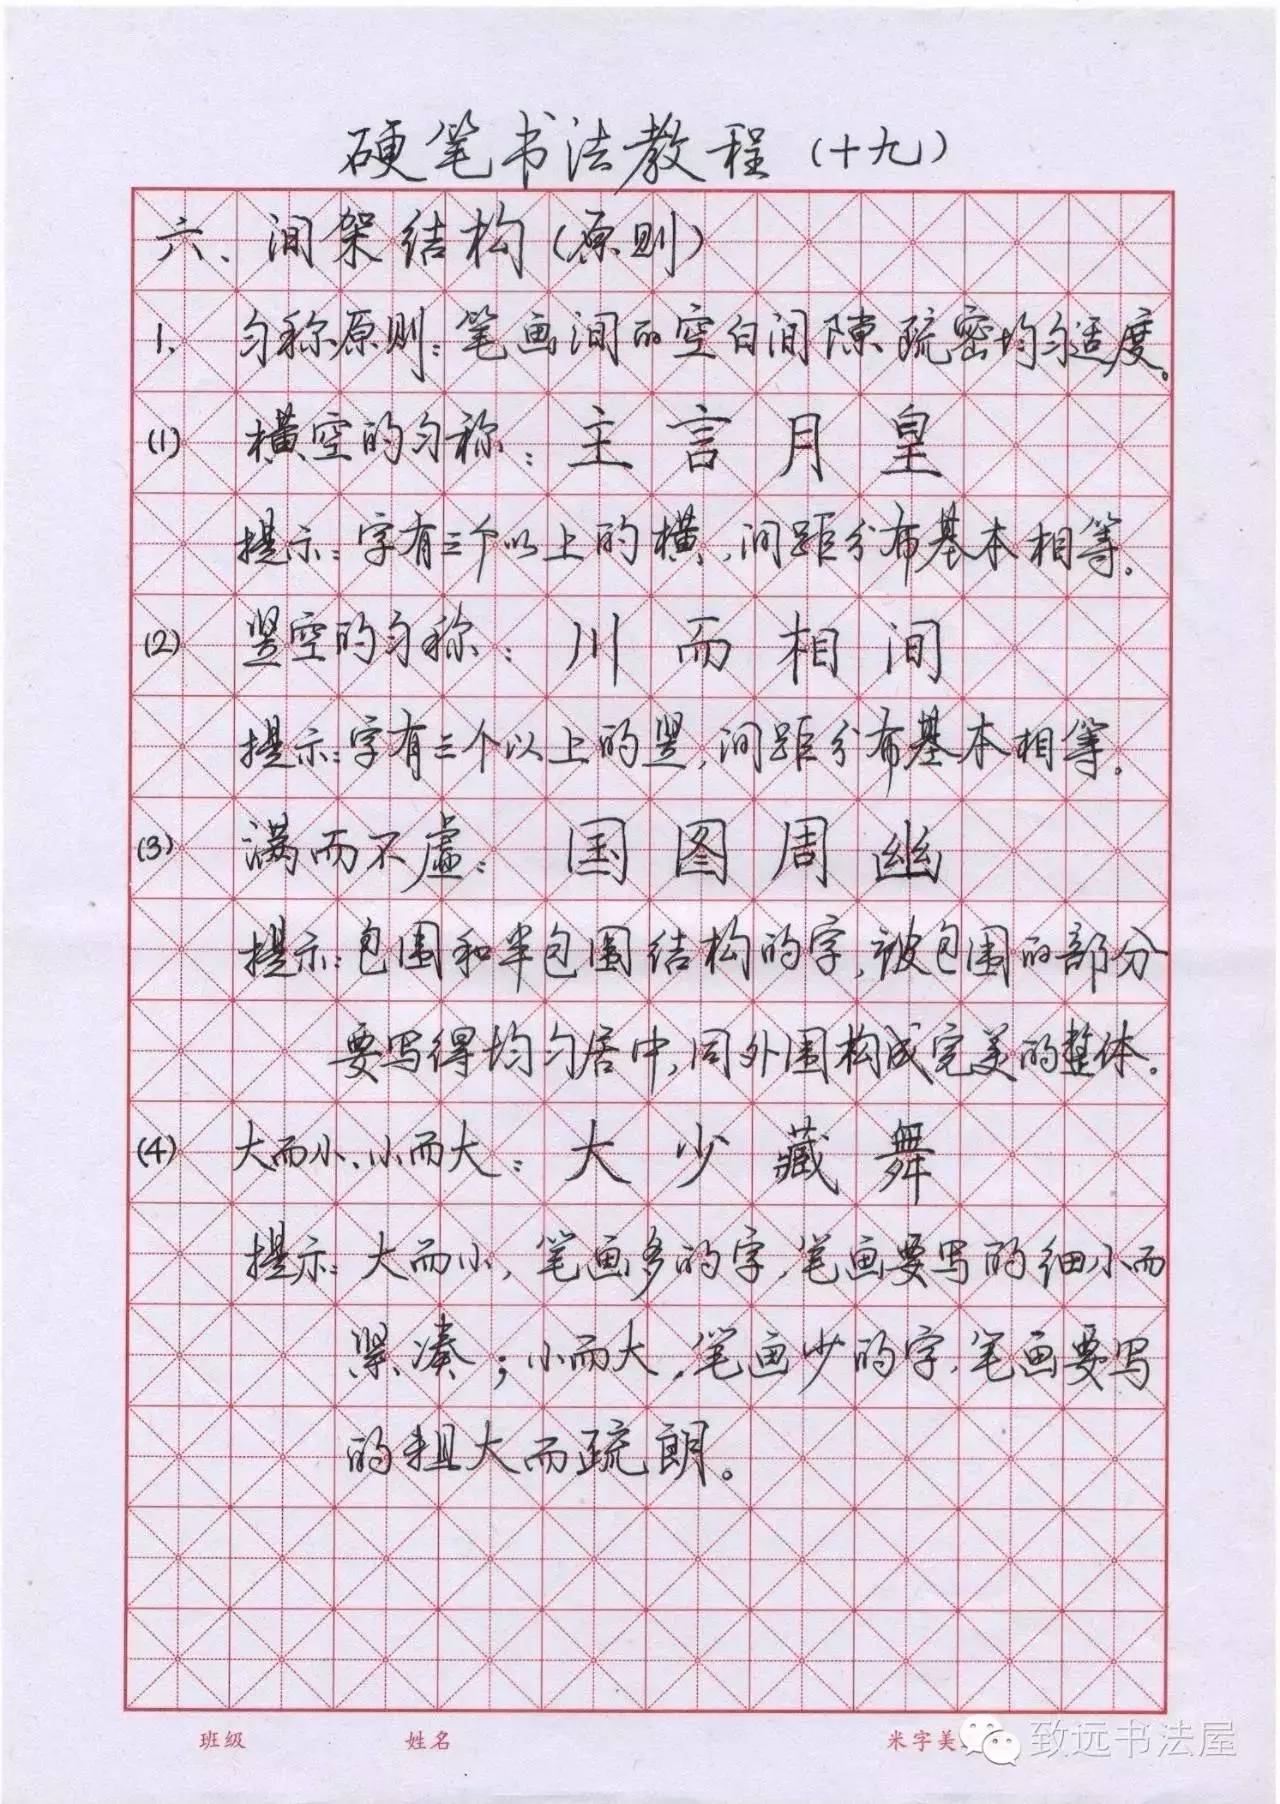 硬笔书法教程（十九）
六、间架结构（原则）
1、匀称原则：笔画间的空白间隙疏密均匀适度。
(1) 横空的匀称：主言月皇
提示：字有三个以上的横，间距分布基本相等。
(2) 竖空的匀称：川而相间
提示：字有三个以上的竖，间距分布基本相等。
(3) 满而不虚：国图周幽
提示：包围和半包围结构的字，被包围的部分
要写得均匀居中，同外围构成完美的整体。
(4) 大而小、小而大：大少藏舞
提示：大而小，笔画多的字，笔画要写的细小而
紧凑；小而大，笔画少的字，笔画要写
的粗大而疏朗。
班级 姓名 米字美 致远书法屋